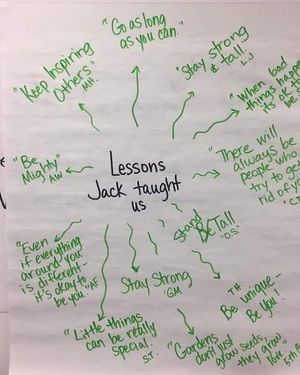 "Go as long
as you can."
"Keep Inspiring
Others" MH.
"Stay strong
& tall." L.J
"When bad
things happe
it's ok
be s
"There will
always be
people who
try to ge
rid of y
"Be
Mighty" AW
Lessons
Jack taught
us
Stand
Be Tall"
"O.S."
"Even
if everything
around you
is different-
it's okay to
be you." AF
Stay Strong
"GM
TH
Be unique-
Be You!
"Little things
can be really
special." S.T.
"Gardens
don't just
grow seeds,
they grow
love"
5th